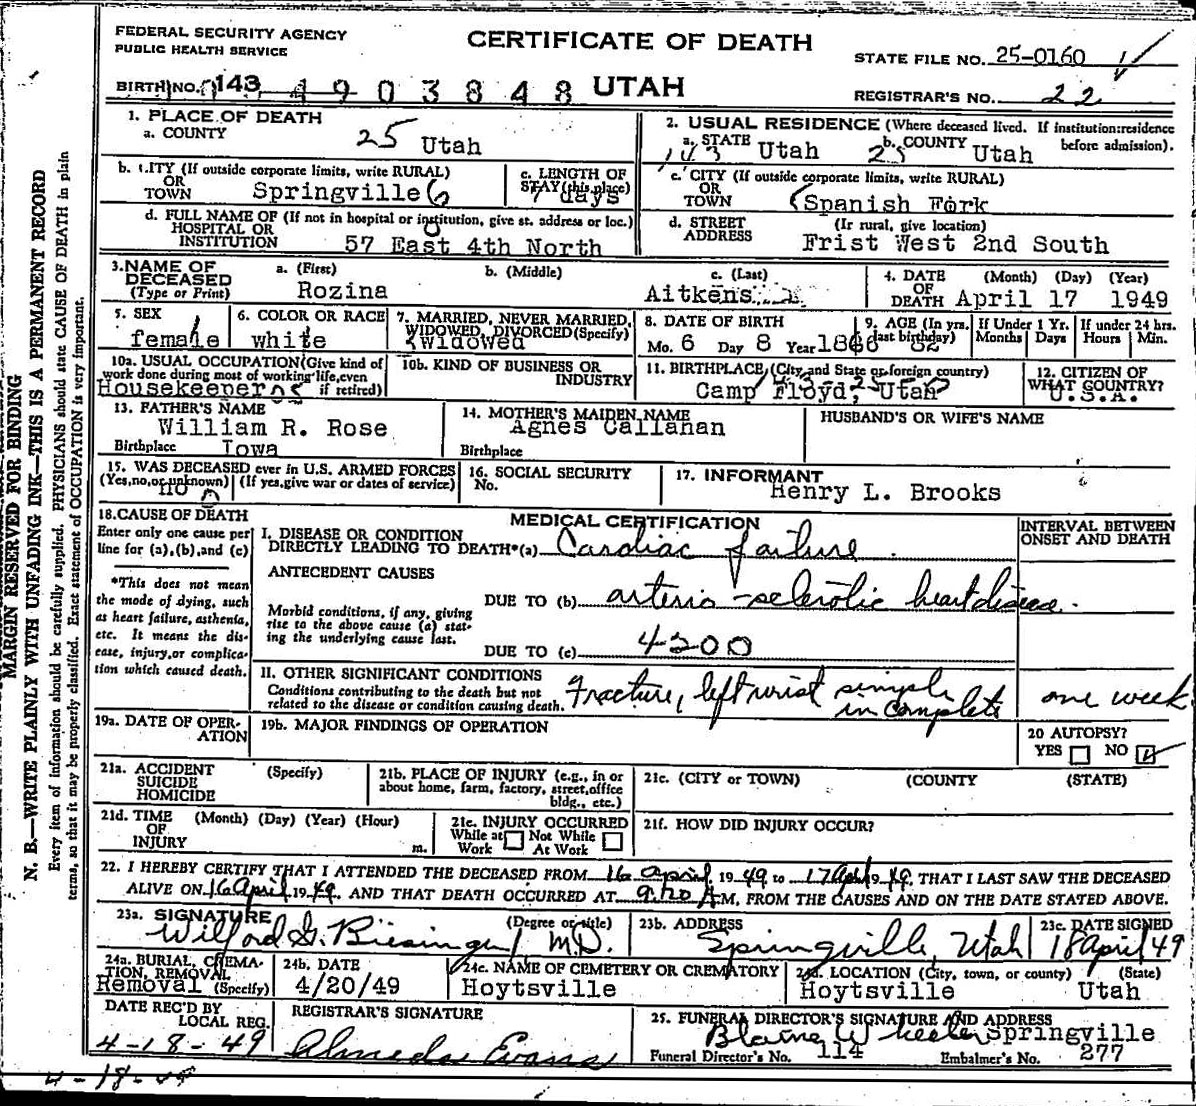 FEDERAL SECURITY AGENCY
PUBLIC HEALTH SERVICE
CERTIFICATE OF DEATH
STATE FILE NO. 25-0160
BIRTH NO. 143 4903848 UTAH
REGISTRAR'S NO. 22
1. PLACE OF DEATH
a. COUNTY 25 Utah
2. USUAL RESIDENCE (Where deceased lived. If institution:residence before admission).
a. STATE 143 Utah b. COUNTY 25 Utah
b. CITY (If outside corporate limits, write RURAL)
OR
TOWN Springville 6
c. LENGTH OF
STAY (this place)
7 days
c. CITY (If outside corporate limits, write RURAL)
OR
TOWN Spanish Fork
d. FULL NAME OF (If not in hospital or institution, give st. address or loc.)
HOSPITAL OR
INSTITUTION 57 East 4th North
d. STREET (Ir rural, give location)
ADDRESS Frist West 2nd South
3. NAME OF DECEASED
(Type or Print)
a. (First) b. (Middle) c. (Last)
Rozina Aitkens
4. DATE OF DEATH (Month) (Day) (Year)
April 17 1949
5. SEX
female
6. COLOR OR RACE
white
7. MARRIED, NEVER MARRIED,
WIDOWED, DIVORCED(Specify)
widowed
8. DATE OF BIRTH
Mo. 6 Day 8 Year 1866
9. AGE (In yrs. last birthday)
82
If Under 1 Yr.
Months Days
If under 24 hrs.
Hours Min.
10a. USUAL OCCUPATION(Give kind of
work done during most of working life,even
if retired)
Housekeeper
10b. KIND OF BUSINESS OR
INDUSTRY
11. BIRTHPLACE (City and State or foreign country)
Camp Floyd, Utah
12. CITIZEN OF
WHAT COUNTRY?
U.S.A.
13. FATHER'S NAME
William R. Rose
Birthplace Iowa
14. MOTHER'S MAIDEN NAME
Agnes Callahan
Birthplace
HUSBAND'S OR WIFE'S NAME
15. WAS DECEASED ever in U.S. ARMED FORCES
(Yes,no,or unknown) (If yes,give war or dates of service)
no
16. SOCIAL SECURITY
No.
17. INFORMANT
Henry L. Brooks
18. CAUSE OF DEATH
Enter only one cause per
line for (a),(b),and (c)
*This does not mean
the mode of dying, such
as heart failure, asthenia,
etc. It means the dis-
ease, injury,or complica-
tion which caused death.
MEDICAL CERTIFICATION
INTERVAL BETWEEN
ONSET AND DEATH
I. DISEASE OR CONDITION
DIRECTLY LEADING TO DEATH*(a) Cardiac failure
ANTECEDENT CAUSES
Morbid conditions, if any, giving
rise to the above cause (a) stat-
ing the underlying cause last.
DUE TO (b) arterio-sclerotic heart disease.
DUE TO (c) 4200
II. OTHER SIGNIFICANT CONDITIONS
Conditions contributing to the death but not
related to the disease or condition causing death.
Fracture, left wrist simple
incomplete
one week
19a. DATE OF OPER-
ATION
19b. MAJOR FINDINGS OF OPERATION
20 AUTOPSY?
YES NO
21a. ACCIDENT (Specify)
SUICIDE
HOMICIDE
21b. PLACE OF INJURY (e.g., in or
about home, farm, factory, street,office
bldg., etc.)
21c. (CITY or TOWN) (COUNTY) (STATE)
21d. TIME (Month) (Day) (Year) (Hour)
OF
INJURY m.
21e. INJURY OCCURRED
While at Not While
Work At Work
21f. HOW DID INJURY OCCUR?
22. I HEREBY CERTIFY THAT I ATTENDED THE DECEASED FROM 16 April, 1949 to 17 Apl 1949, THAT I LAST SAW THE DECEASED
ALIVE ON 16 April 1949, AND THAT DEATH OCCURRED AT 9:20 A M, FROM THE CAUSES AND ON THE DATE STATED ABOVE.
23a. SIGNATURE (Degree or title)
Wilford G. Biesinger M.D.
23b. ADDRESS
Springville, Utah
23c. DATE SIGNED
18 April 49
24a. BURIAL, CREMA-
TION, REMOVAL
(Specify)
Removal
24b. DATE
4/20/49
24c. NAME OF CEMETERY OR CREMATORY
Hoytsville
24d. LOCATION (City, town, or county) (State)
Hoytsville Utah
DATE REC'D BY
LOCAL REG.
4-18-49
REGISTRAR'S SIGNATURE
Almeda Evans
25. FUNERAL DIRECTOR'S SIGNATURE AND ADDRESS
Blaine Wheeler Springville
Funeral Director's No. 114 Embalmer's No. 277
4-18-49
MARGIN RESERVED FOR BINDING
N. B.—WRITE PLAINLY WITH UNFADING INK—THIS IS A PERMANENT RECORD
Every item of information should be carefully supplied. PHYSICIANS should state CAUSE OF DEATH in plain
terms, so that it may be properly classified. Exact statement of OCCUPATION is very important.